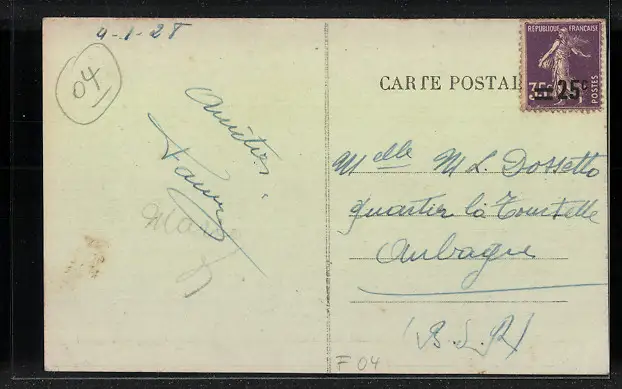 4-1-28
04
Amitiés
CARTE POSTAL
REPUBLIQUE FRANÇAISE
35c
25c
POSTES
Melle M L. Dossetto
quartier la Tourtelle
Aubagne
(B. d. R)
F 04